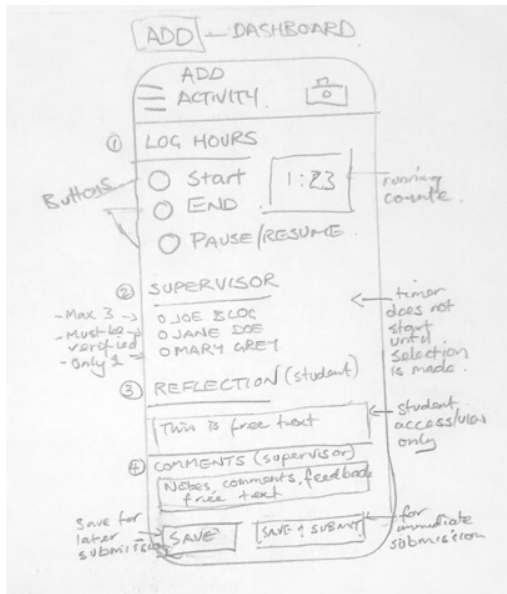 ADD - DASHBOARD
ADD
ACTIVITY.
① LOG HOURS
Buttons
Start
END
PAUSE/RESUME
1:23
running
counte.
② SUPERVISOR
- Max 3
- Must be
verified
- Only 1
JOE BLOG
JANE DOE
MARY GREY
timer
does not
start
until
selection
is made.
③ REFLECTION (student)
This is free text
student
access/view
only
④ COMMENTS (supervisor)
Notes, comments, feedback
free text
Save for
later
submission
SAVE
SAVE & SUBMIT
for
immediate
submission